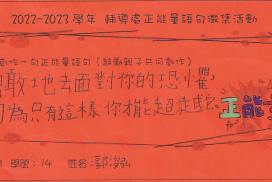 2022-2023學年 輔導處正能量語句徵集活動
創作一句正能量語句（鼓勵親子共同創作）
敢地去面對你的恐懼，
為只有這樣你才能超越它。
正能
學號：14 姓名：郭